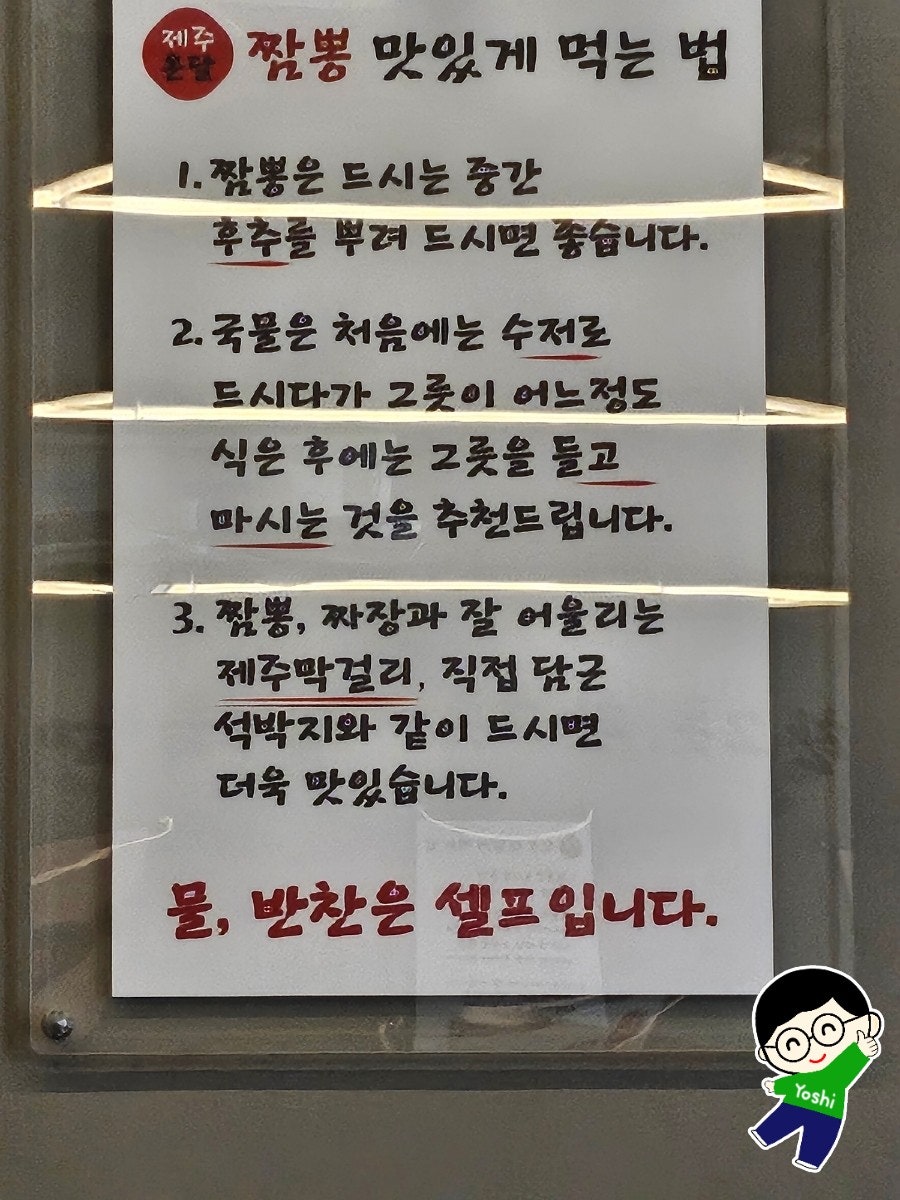 제주
온달
짬뽕 맛있게 먹는 법
1. 짬뽕은 드시는 중간
후추를 뿌려 드시면 좋습니다.
2. 국물은 처음에는 수저로
드시다가 그릇이 어느정도
식은 후에는 그릇을 들고
마시는 것을 추천드립니다.
3. 짬뽕, 짜장과 잘 어울리는
제주막걸리, 직접 담근
석박지와 같이 드시면
더욱 맛있습니다.
물, 반찬은 셀프입니다.
Yoshi